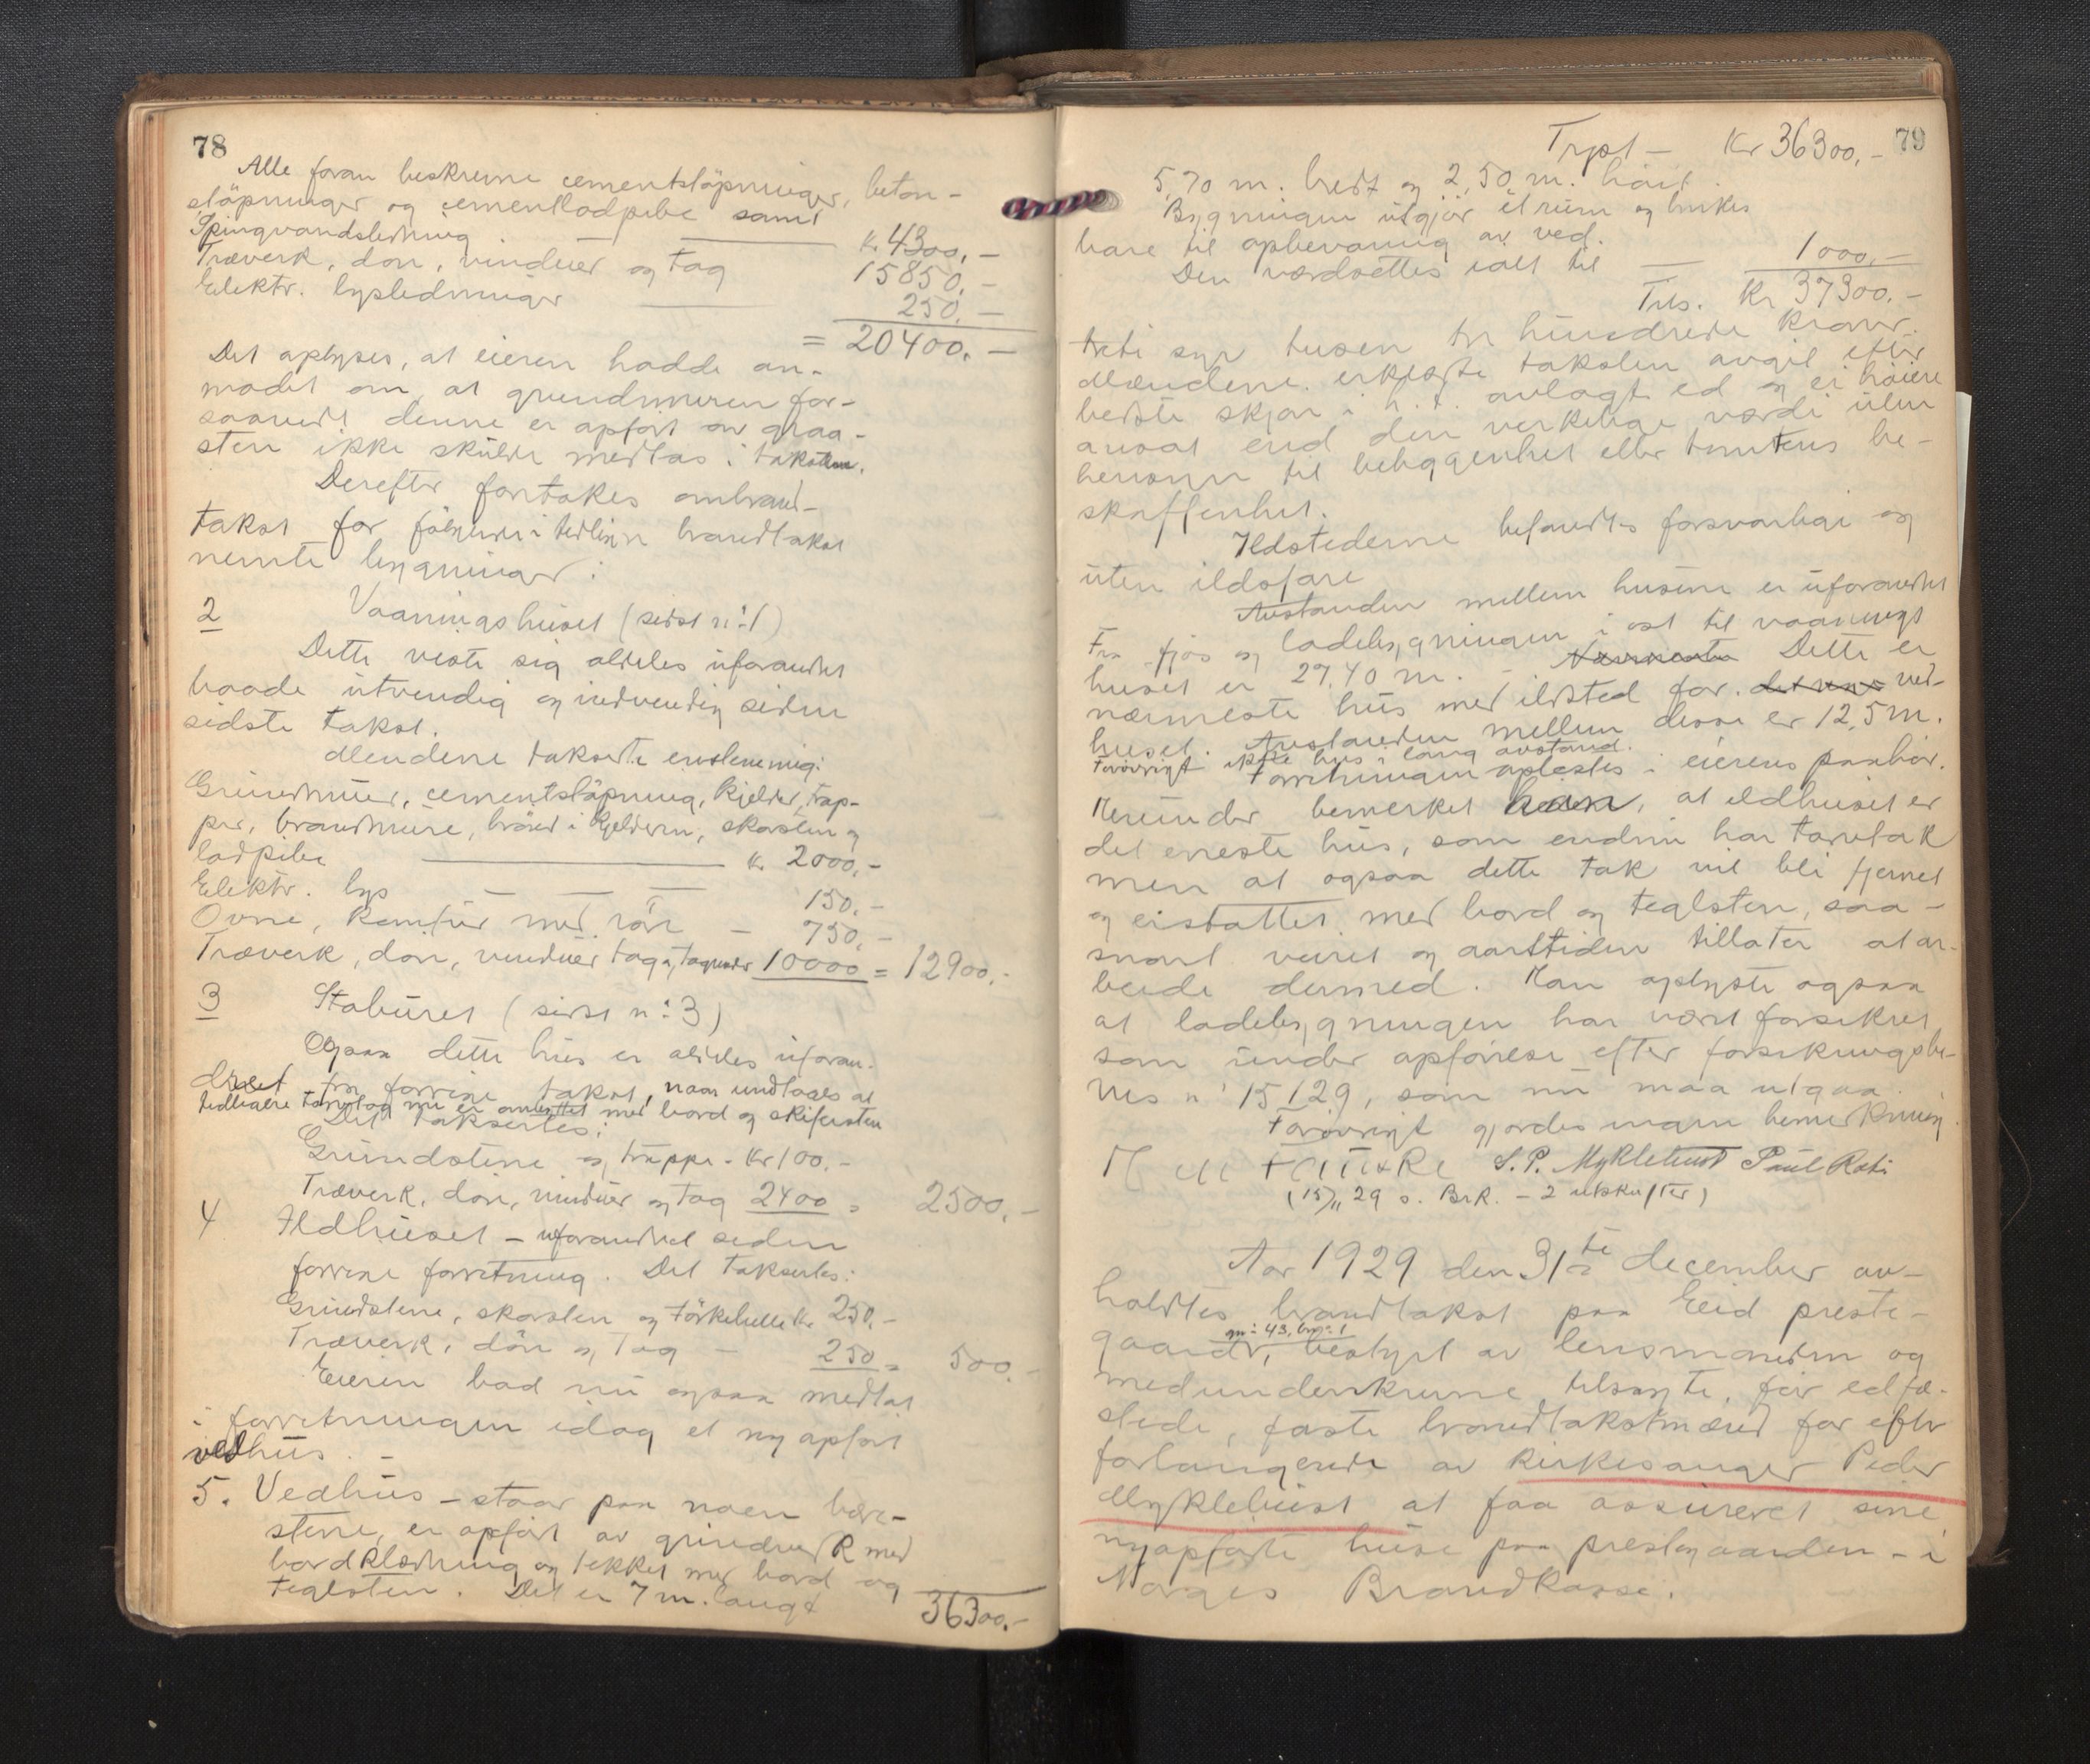 78
Alle foran beskrevne cementstöpninger, beton-
støpninger og cementlodpibe samt
Springvandsledning — k. 4300,-
Træverk, dör, vinduer og tag 15850,-
Elektr. lysledninger — 250,-
= 20400,-
Det oplyses, at eieren hadde an-
modet om, at grundmuren for-
saavidt denne er opfört av graa-
sten ikke skulde medtas i taksten.
Derefter foretokes ombrand-
takst for følgende i tidligere brandtakst
nevnte bygninger:
2 Vaaningshuset (sidst n: 1)
Dette viste sig aldeles uforandret
baade utvendig og indvendig siden
sidste takst.
Mendene takserte enstemmig:
Grundmur, cementstöpning, kjelder, trap-
per, brandmure, brönd i kjelderen, skorsten og
lodpibe — k. 2000,-
Elektr. lys — — — 150,-
Ovne, komfur med rör — 750,-
Træverk, dör, vinduer tag og tagrender 10000 = 12900,-
3 Staburet (sidst n: 3)
Ogsaa dette hus er aldeles uforan-
dret fra forrige takst, naar undtages at
tidligere torvtag nu er ombyttet med bord og skifersten
Det takseredes:
Grundstene og trappe - Kr 100,-
Træverk, dör, vinduer og tag 2400 = 2500,-
4 Ildhuset - uforandret siden
forrige forretning. Det takseredes:
Grundstene, skorsten og törkehelle Kr. 250,-
Træverk, dör og tag - 250 = 500,-
Eieren bad nu ogsaa medtat
i forretningen idag et ny opfört
vedhus. -
5. Vedhus - staar paa noen bære-
stene, er opfört av grindverk med
bordklædning og tekket med bord og
teglsten. Det er 7 m. langt
36300,-
79
Trpst — Kr 36300,-
5,70 m. bredt og 2,50 m. höit.
Bygningen utgjör et rum og brukes
bare til opbevaring av ved.
Den værdsættes ialt til — 1000,-
Tils. Kr 37300,-
treti syv tusen tre hundrede kroner.
Mændene erklærte taksten avgit efter
bedste skjön i h. t. avlagt ed og ei höiere
ansat end den verkelige værdi uten
hensyn til beliggenhet eller tomtens be-
skaffenhet.
Ildstederne befandtes forsvarlige og
uten ildsfare
Avstanden mellem husene er uforandret
Fra fjös og ladebygningen i öst til vaanings
huset er 27,40 m. - Dette er
nærmeste hus med ildsted for ved-
huset. Avstanden mellem disse er 12,5 m.
Forövrigt ikke hus i lang avstand.
Forretningen oplæstes i eierens paahör.
Herunder bemerket han, at ildhuset er
det eneste hus, som endnu har torvtak
men at ogsaa dette tak vil bli fjernet
og erstattet med bord og teglsten, saa-
snart veiret og aarstiden tillater at ar-
beide dermed. Han oplyste ogsaa
at ladebygningen har vært forsikret
som under opförelse efter forsikringsbe-
vis n: 15129, som nu maa utgaa.
Forövrigt gjordes ingen bemerkning
S. P. Myklebust Paul Roti
(15/11 29 s. Br.K. - 2 utskrifter)
Aar 1929 den 31te december av-
holdtes brandtakst paa Eid preste-
gaard, gn: 43, br: 1 bestyrt av lensmanden og
medunderskrevne tilsagte, för edfæ-
stede, faste brandtakstmænd for efter
forlangende av kirkesanger Peder
Myklebust at faa assureret sine
nyopförte huse paa prestegaarden - i
Norges Brandkasse.